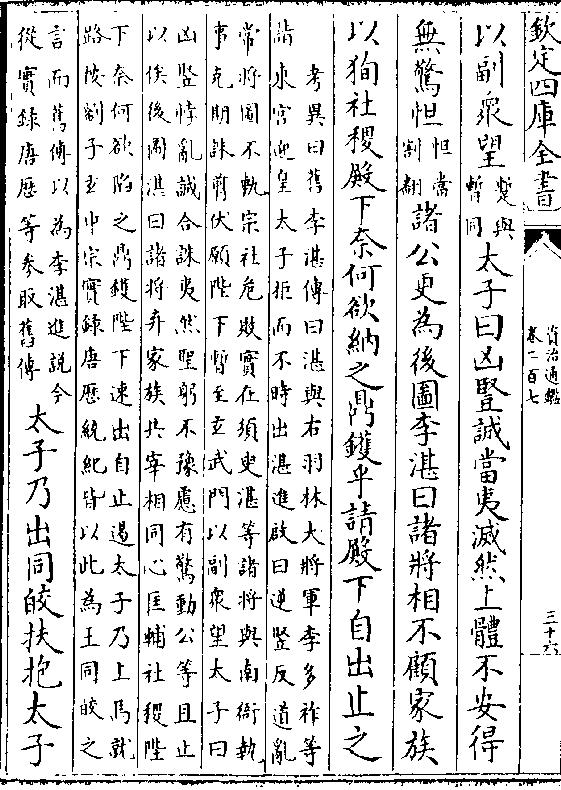 欽定四庫全書
資治通鑑
卷二百七
三十六
以副衆望蹔與暫同太子曰凶豎誠當夷滅然上體不安得
無驚怛怛當割翻諸公更為後圖李湛曰諸將相不顧家族
以狥社稷殿下奈何欲納之鼎鑊乎請殿下自出止之
考異曰舊李湛傳曰湛與右羽林大將軍李多祚等
詣東宫迎皇太子拒而不時出湛進啟曰逆豎反道亂
常將圖不軌宗社危敗實在須臾湛等諸將與南衙執
事克期誅翦伏願陛下暫至玄武門以副衆望太子曰
凶豎悖亂誠合誅夷然聖躬不豫慮有驚動公等且止
以俟後圖湛曰諸將弃家族共宰相同心匡輔社稷陛
下奈何欲陷之鼎鑊陛下速出自止遏太子乃上馬就
路按劉子玄中宗實錄唐歷統紀皆以此為王同皎之
言而舊傳以為李湛進説今
從實録唐歷等參取舊傳太子乃出同皎扶抱太子